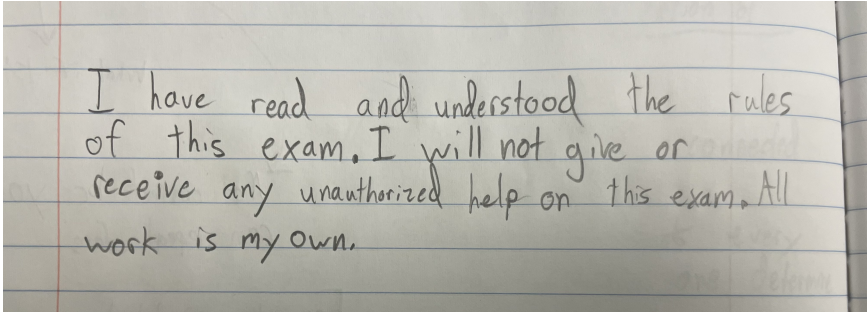 I have read and understood the rules
of this exam. I will not give or
receive any unauthorized help on this exam. All
work is my own.